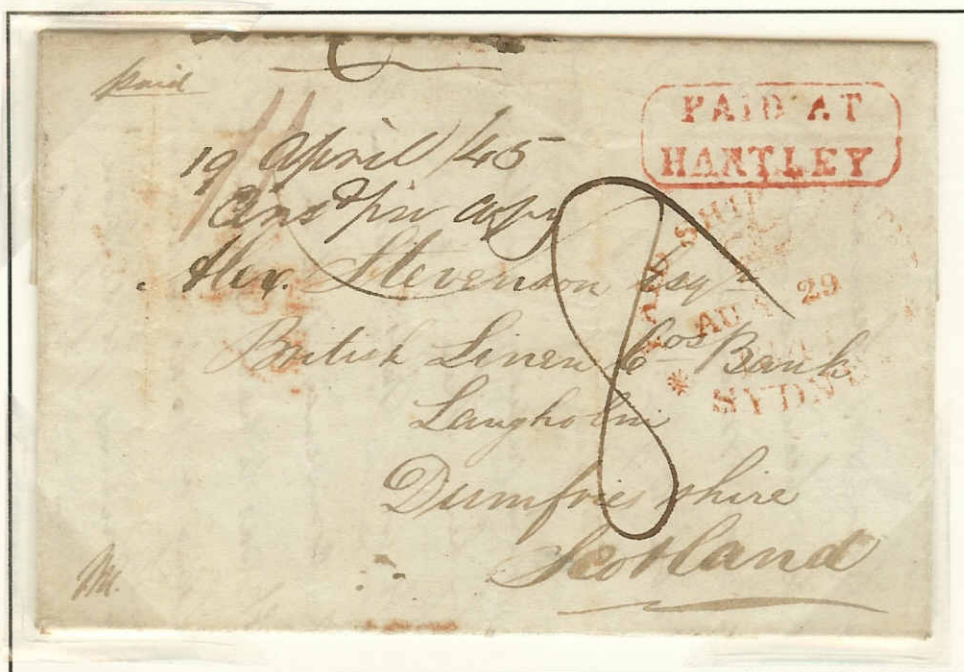 paid
PAID AT
HARTLEY
19 April /45
Ans pr copy
Alex. Stevenson Esqr
British Linen Cos Bank
Langholm
Dumfries shire
Scotland
8
PAID SHIP
AUG 29
* SYDNEY *